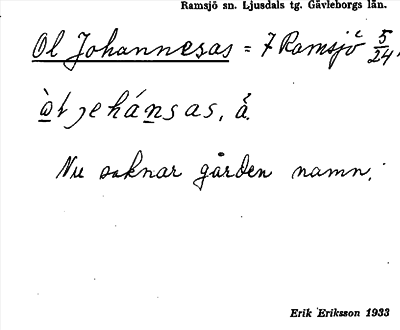 Ramsjö sn. Ljusdals tg. Gävleborgs län.
Ol Johannesas = 7 Ramsjö 5/24.
òt jehánsas, å.
Nu saknar gården namn.
Erik Eriksson 1933